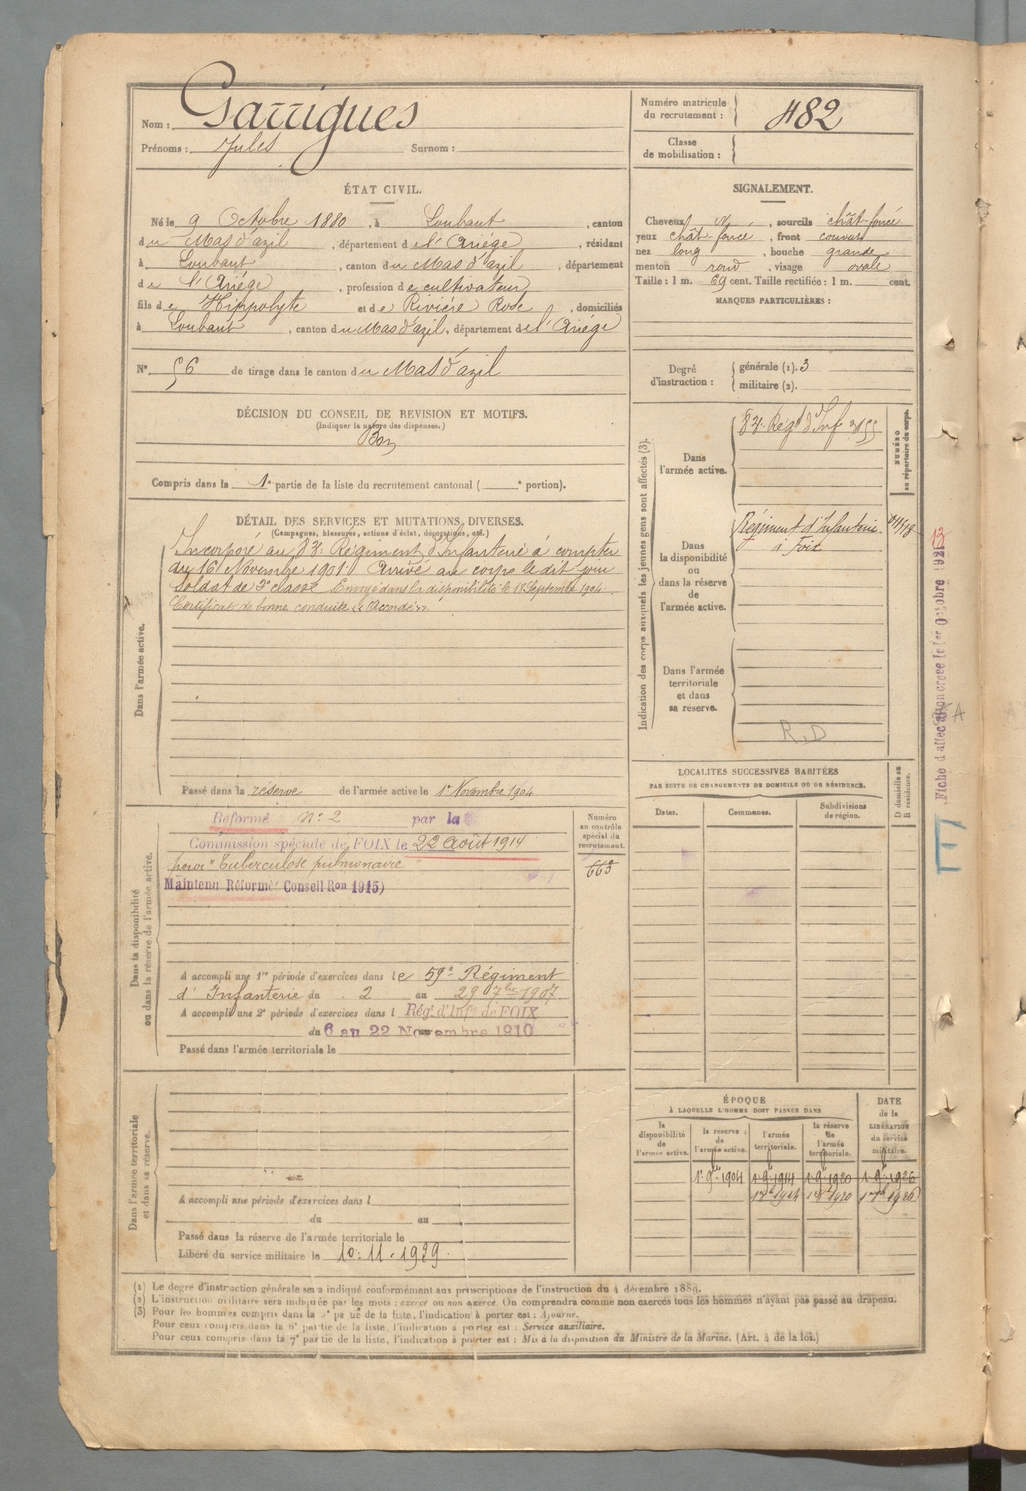 Nom : Garrigues
Prénoms : Jules Surnom :
Numéro matricule du recrutement : 482
Classe de mobilisation :
ÉTAT CIVIL.
Né le 9 Octobre 1880, à Loubaut, canton
du Mas d'azil, département de l'Ariége, résidant
à Loubaut, canton du Mas d'azil, département
de l'Ariége, profession de cultivateur
fils de Hippolyte et de Rivière Rose, domiciliés
à Loubaut, canton du Mas d'azil, département de l'Ariége
N° 56 de tirage dans le canton du Mas d'azil
SIGNALEMENT.
Cheveux , sourcils chât-foncé
yeux chât-foncé, front couvert
nez long, bouche grande
menton rond, visage ovale
Taille : 1 m. 69 cent. Taille rectifiée : 1 m. cent.
MARQUES PARTICULIÈRES :
Degré d'instruction : générale (1). 3
militaire (2).
DÉCISION DU CONSEIL DE REVISION ET MOTIFS.
(Indiquer la nature des dispenses.)
Bon
Compris dans la 1e partie de la liste du recrutement cantonal ( e portion).
DÉTAIL DES SERVICES ET MUTATIONS DIVERSES.
(Campagnes, blessures, actions d'éclat, décorations, etc.)
Dans l'armée active.
Incorporé au Régiment d'Infanterie à compter
du 16 Novembre 1901. Arrivé au corps le dit jour
Soldat de 2e classe Envoyé dans la disponibilité le 18 Septembre 1904.
Certificat de bonne conduite « Accordé ».
Passé dans la réserve de l'armée active le 1er Novembre 1904
Indication des corps auxquels les jeunes gens sont affectés (3).
Dans l'armée active.
Régt d'Inf
NUMÉRO au répertoire du corps.
Dans la disponibilité ou dans la réserve de l'armée active.
Régiment d'Infanterie
à Foix
Dans l'armée territoriale et dans sa réserve.
R.D
Fiche d'affectation créée le 1er Octobre 1921
13
Dans la disponibilité ou dans la réserve de l'armée active.
Réformé n° 2 par la
Commission spéciale de FOIX le 22 Août 1914
pour "Tuberculose pulmonaire"
Maintenu Réformé Conseil Ron 1915)
Numéro au contrôle spécial du recrutement.
663
A accompli une 1re période d'exercices dans le 59e Régiment
d'Infanterie du 2 au 29 7bre 1907
A accompli une 2e période d'exercices dans l Régt d'Infie de FOIX
du 6 au 22 Novembre 1910
Passé dans l'armée territoriale le
LOCALITÉS SUCCESSIVES HABITÉES
PAR SUITE DE CHANGEMENTS DE DOMICILE OU DE RÉSIDENCE.
Dates. Communes. Subdivisions de région. D domicile ou R résidence.
Dans l'armée territoriale et dans sa réserve.
A accompli une période d'exercices dans l
du au
Passé dans la réserve de l'armée territoriale le
Libéré du service militaire le 10.11.1929.
ÉPOQUE
À LAQUELLE L'HOMME DOIT PASSER DANS
DATE de la LIBÉRATION du service militaire.
la disponibilité de l'armée active. la réserve de l'armée active. l'armée territoriale. la réserve de l'armée territoriale.
1 9bre 1904 1 9bre 1914 1 9bre 1920 1 9bre 1926
(1) Le degré d'instruction générale sera indiqué conformément aux prescriptions de l'instruction du 4 décembre 1889.
(2) L'instruction militaire sera indiquée par les mots : exercé ou non exercé. On comprendra comme non exercés tous les hommes n'ayant pas passé au drapeau.
(3) Pour les hommes compris dans la 5e partie de la liste, l'indication à porter est : Ajourné.
Pour ceux compris dans la 6e partie de la liste, l'indication à porter est : Service auxiliaire.
Pour ceux compris dans la 7e partie de la liste, l'indication à porter est : Mis à la disposition du Ministre de la Marine. (Art. 4 de la loi.)